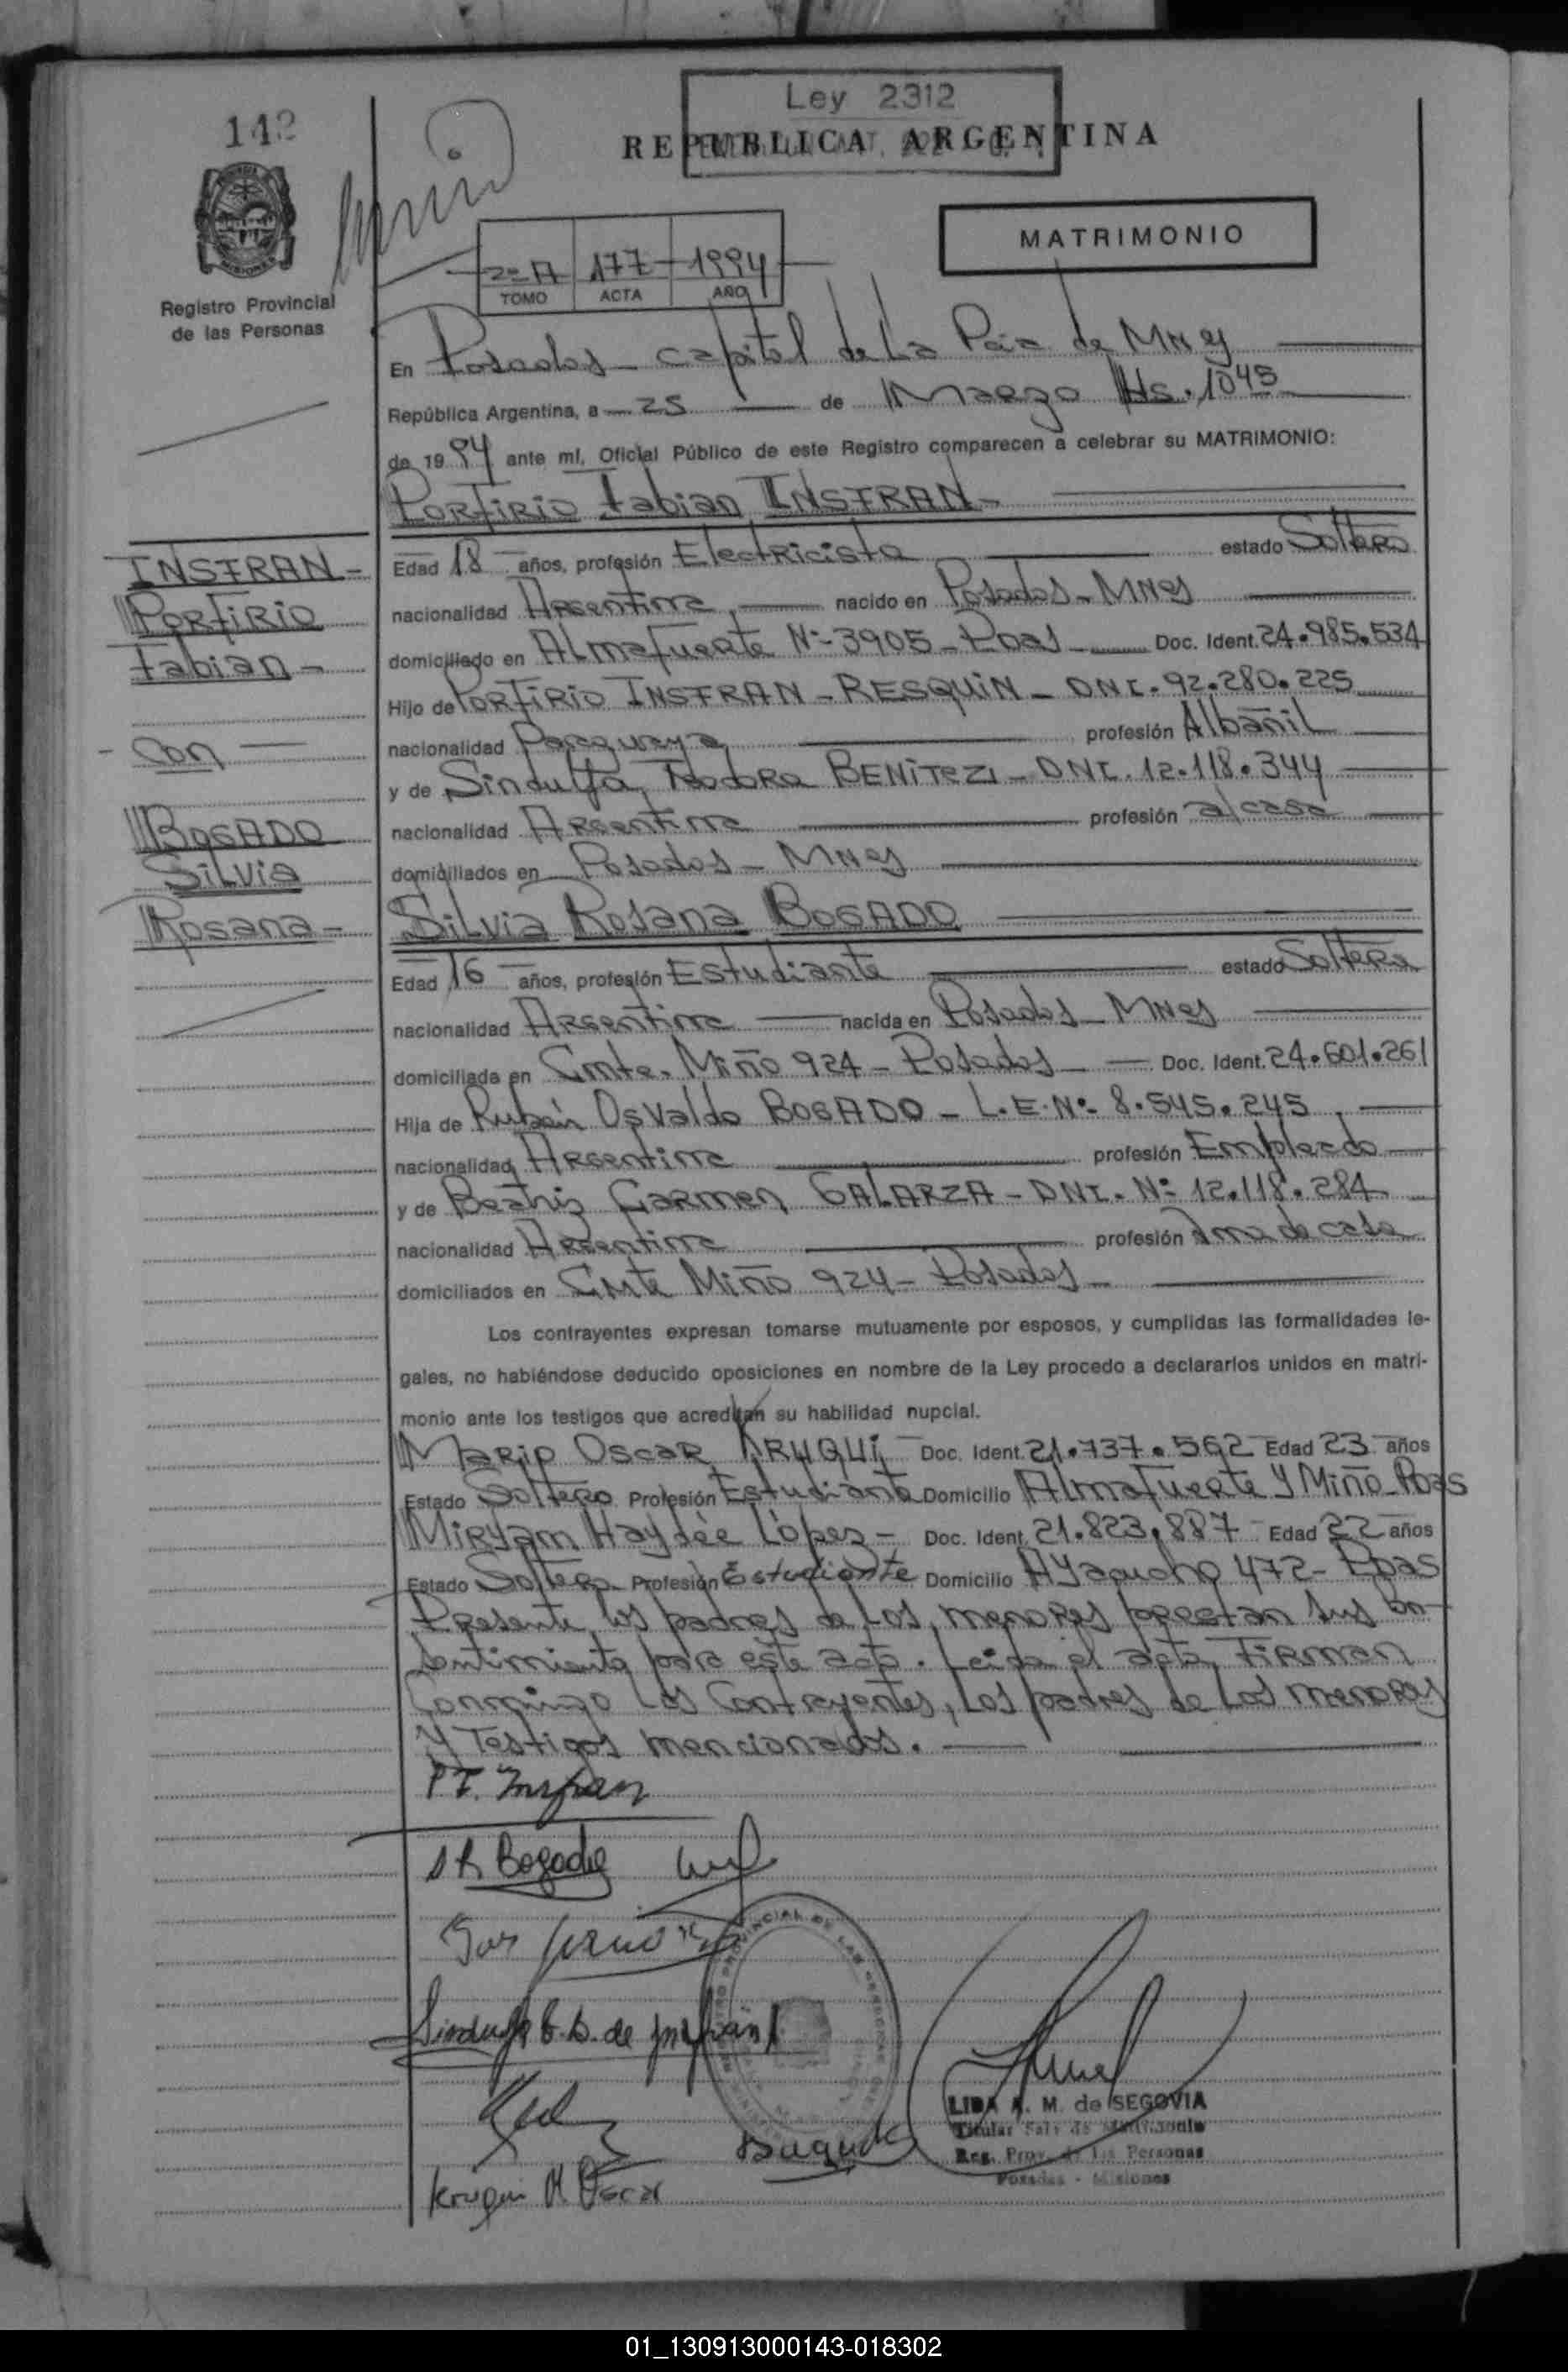 142
Ley 2312
REPUBLICA ARGENTINA
MATRIMONIO
2º A 177 1994
TOMO ACTA AÑO
Registro Provincial
de las Personas
En Posadas - Capital de La Pcia de Mnes
República Argentina, a 25 de Marzo Hs. 1045
de 1994 ante mí, Oficial Público de este Registro comparecen a celebrar su MATRIMONIO:
Porfirio Fabian INSFRAN -
INSFRAN -
Porfirio
Fabian -
Con
BOGADO
Silvia
Rosana -
Edad 18 años, profesión Electricista estado Soltero
nacionalidad Argentina nacido en Posadas - Mnes
domiciliado en Almafuerte Nº 3905 - Pdas - Doc. Ident. 24.985.534
Hijo de Porfirio INSFRAN - RESQUIN - DNI. 92.280.225
nacionalidad Paraguaya profesión Albañil
y de Sindulfa Teodora BENITEZ - DNI. 12.118.344
nacionalidad Argentina profesión a/casa
domiciliados en Posadas - Mnes
Silvia Rosana BOGADO
Edad 16 años, profesión Estudiante estado Soltera
nacionalidad Argentina nacida en Posadas - Mnes
domiciliada en Cmte. Miño 924 - Posadas - Doc. Ident. 24.601.261
Hija de Rubén Osvaldo BOGADO - L.E.Nº 8.545.245
nacionalidad Argentina profesión Empleado
y de Beatriz Carmen GALARZA - DNI. Nº 12.118.284
nacionalidad Argentina profesión Ama de casa
domiciliados en Cmte Miño 924 - Posadas -
Los contrayentes expresan tomarse mutuamente por esposos, y cumplidas las formalidades le-
gales, no habiéndose deducido oposiciones en nombre de la Ley procedo a declararlos unidos en matri-
monio ante los testigos que acreditan su habilidad nupcial.
Mario Oscar KRUQUI Doc. Ident. 21.737.562 Edad 23 años
Estado Soltero Profesión Estudiante Domicilio Almafuerte y Miño - Pdas
Miryam Haydée López - Doc. Ident. 21.823.887 Edad 22 años
Estado Soltera Profesión Estudiante Domicilio Ayacucho 472 - Pdas
Presente los padres de los menores prestan sus con-
sentimiento para este acto. Leida el acta, Firman
Conmigo los Contrayentes, los padres de los menores
y Testigos mencionados.
P.F. Insfran
S R Bogado
Sindulfa T. B. de Insfran
LIDA A. M. de SEGOVIA
Titular Sala de Matrimonio
Reg. Prov. de las Personas
Posadas - Misiones
01_130913000143-018302